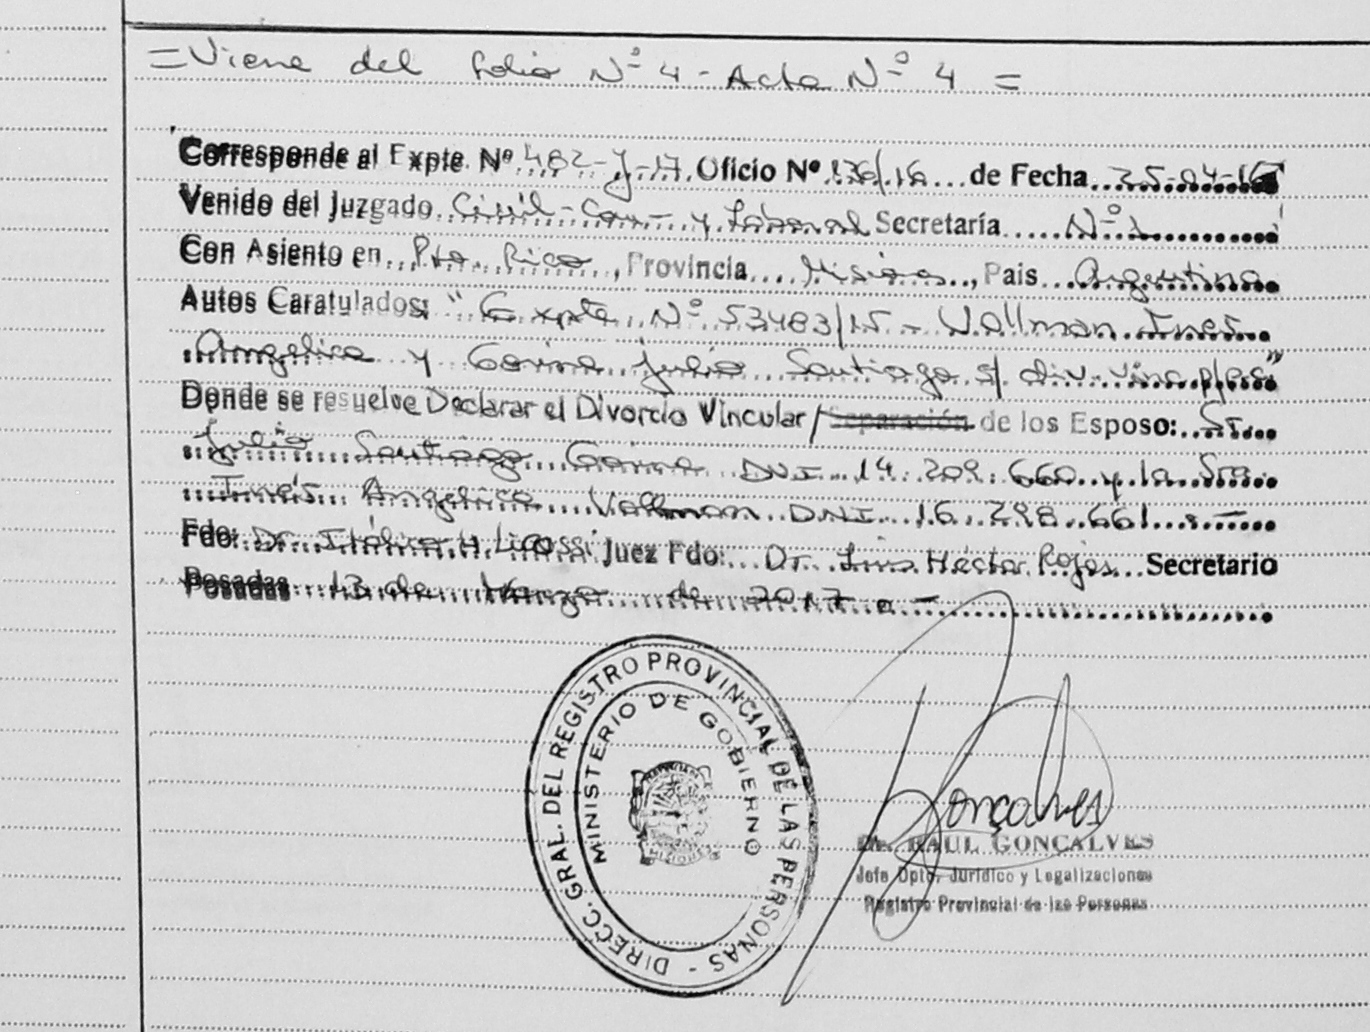 = Viene del folio Nº 4 - Acta Nº 4 =
Corresponde al Expte. Nº 482-Y-17 Oficio Nº 136/16 de Fecha 25-04-16
Venido del Juzgado Civil-Com- y Laboral Secretaría Nº 1
Con Asiento en Pto. Rico, Provincia Misiones, Pais Argentina
Autos Caratulados: "Expte Nº 53483/15 - Wallman Ines
Angelica y Gorina Julio Santiago s/ div. vinc p/pc"
Donde se resuelve Declarar el Divorcio Vincular / Separación de los Esposo: Sr.
Julio Santiago Gorina DNI 14.209.660 y la Sra.
Inés Angelica Wallman DNI 16.298.661 . -
Fdo: Dr. Itálico H Licossi Juez Fdo: Dr. Luis Héctor Rojas Secretario
Posadas 13 de Marzo de 2017 . -
DIRECC. GRAL. DEL REGISTRO PROVINCIAL DE LAS PERSONAS -
MINISTERIO DE GOBIERNO
MISIONES
Gonçalves
Dr. RAUL GONÇALVES
Jefe Dpto. Jurídico y Legalizaciones
Registro Provincial de las Personas